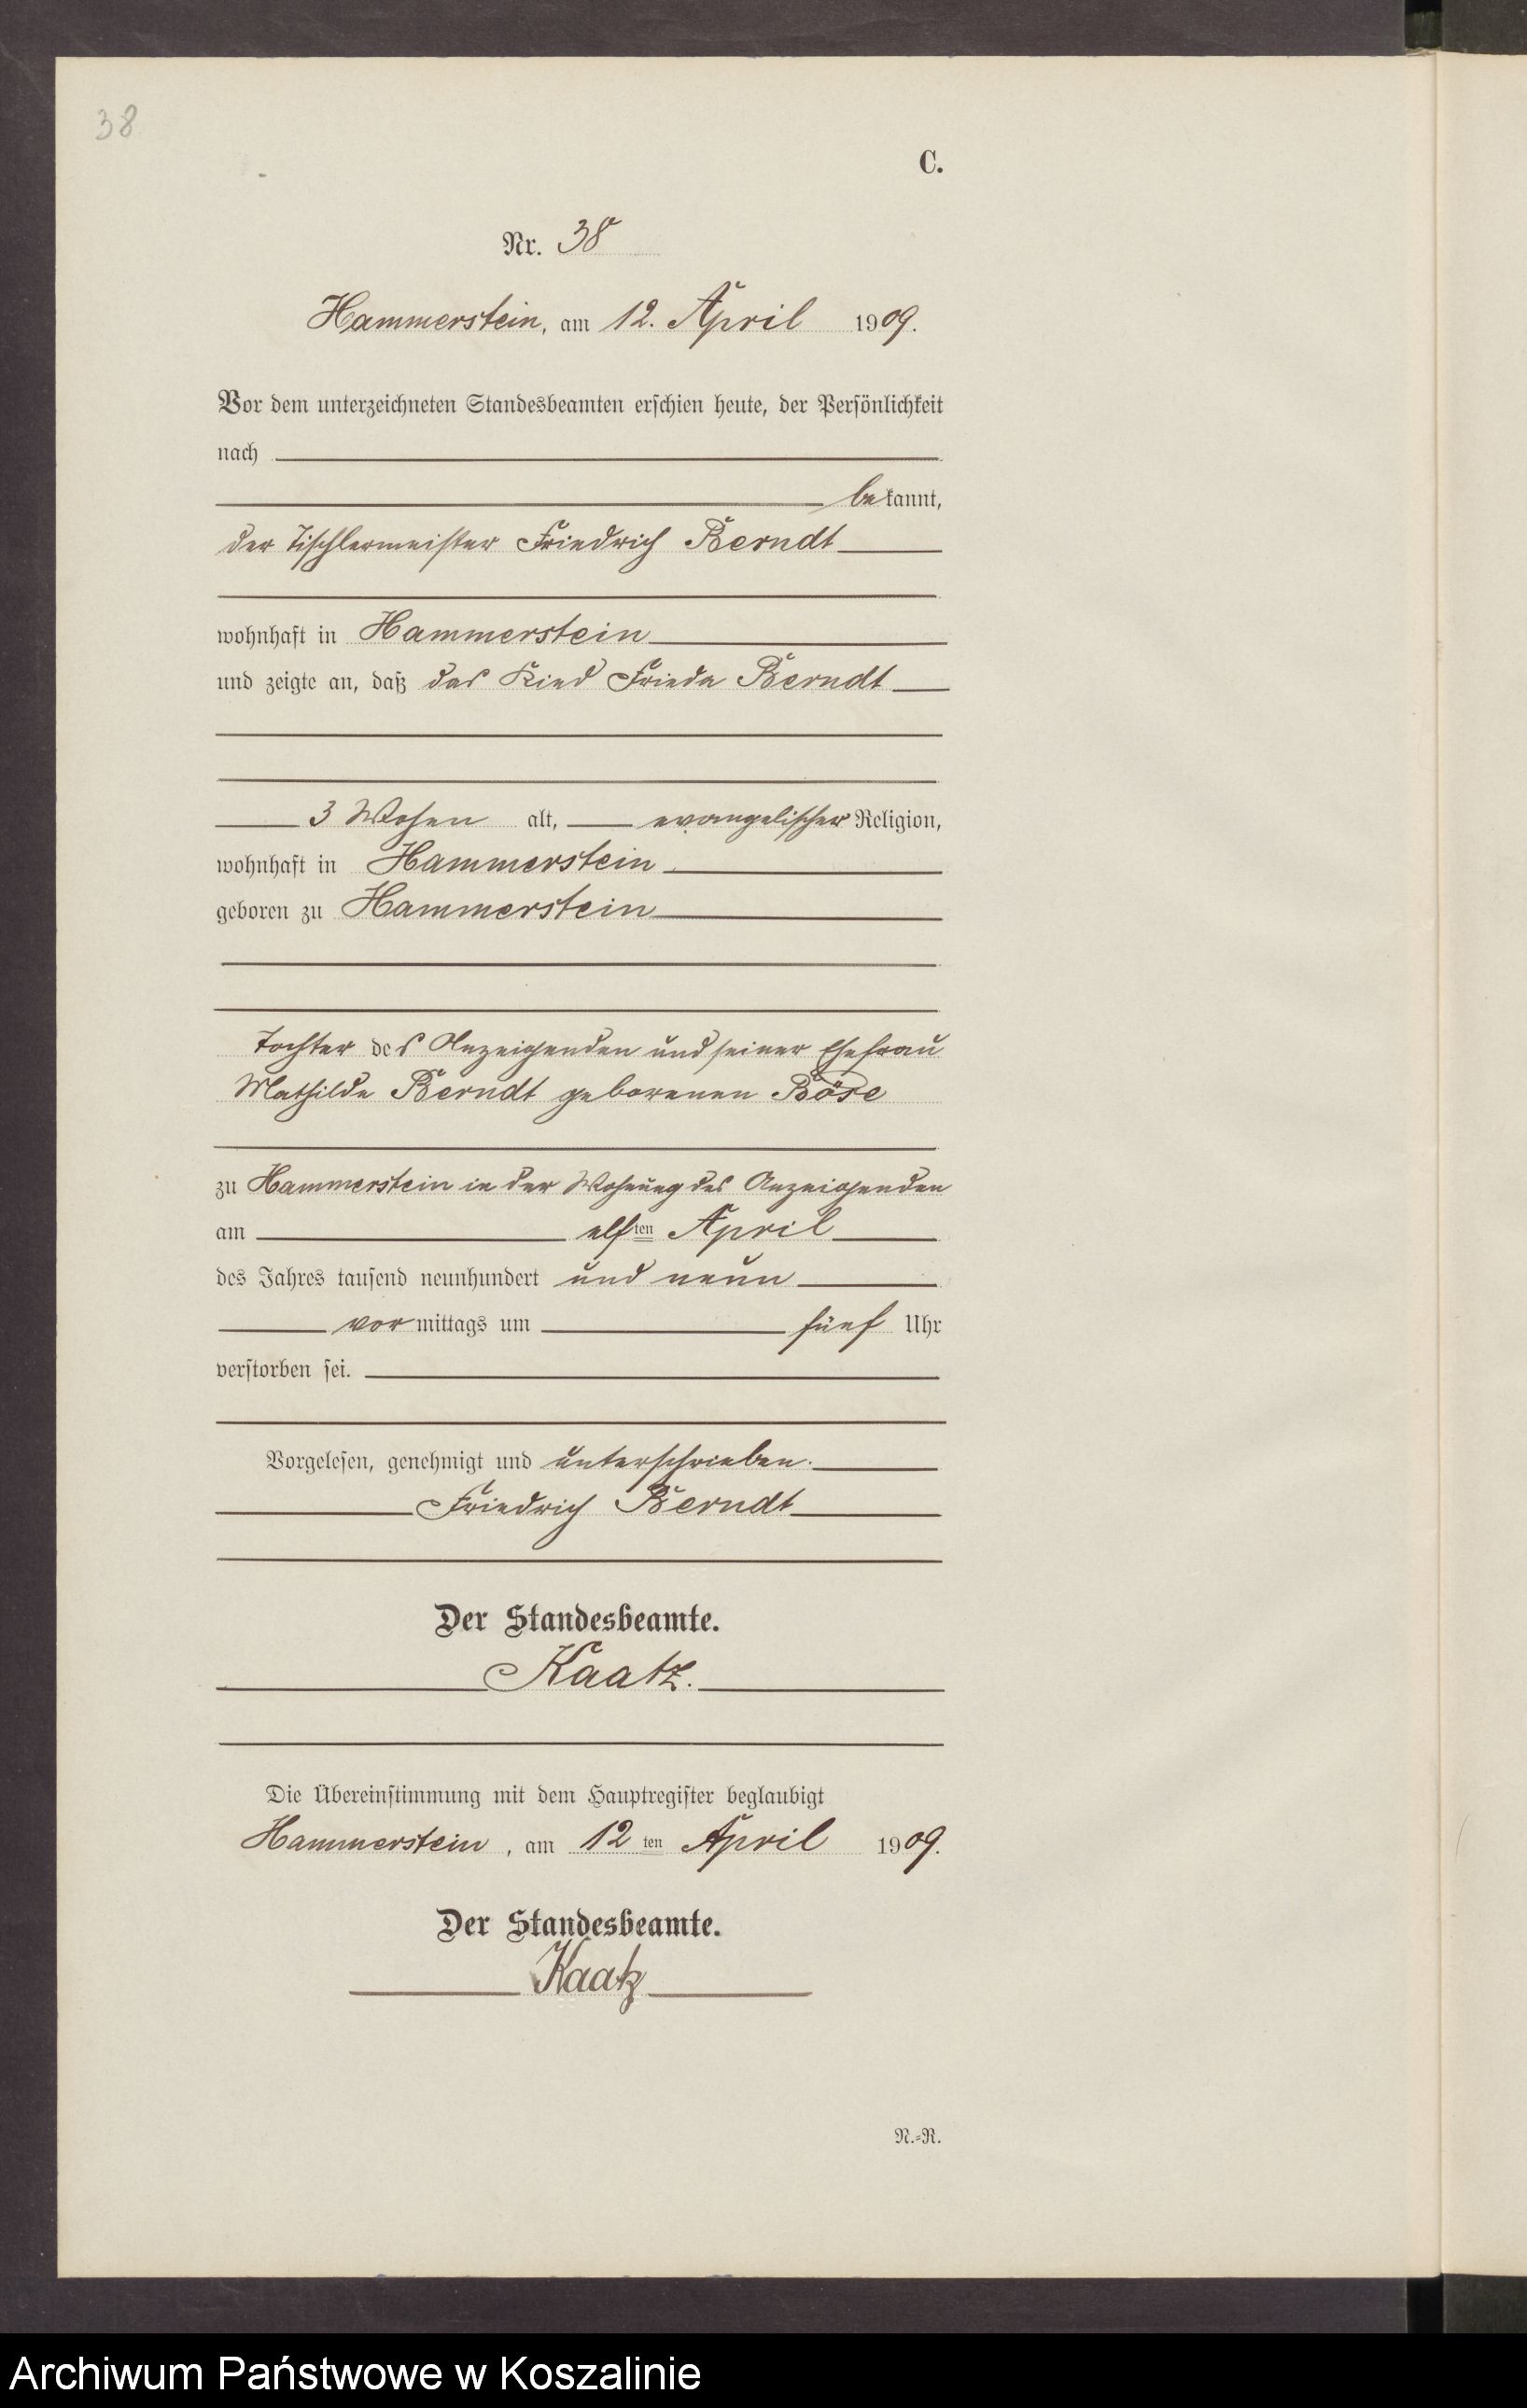 38
C.
Nr. 38
Hammerstein, am 12. April 1909.
Vor dem unterzeichneten Standesbeamten erschien heute, der Persönlichkeit
nach
bekannt,
der Tischlermeister Friedrich Berndt
wohnhaft in Hammerstein
und zeigte an, daß das Kind Frieda Berndt
3 Wochen alt, evangelischer Religion,
wohnhaft in Hammerstein
geboren zu Hammerstein
Tochter des Anzeigenden und seiner Ehefrau
Mathilde Berndt geborenen Böse
zu Hammerstein in der Wohnung des Anzeigenden
am elften April
des Jahres tausend neunhundert und neun
vormittags um fünf Uhr
verstorben sei.
Vorgelesen, genehmigt und unterschrieben.
Friedrich Berndt
Der Standesbeamte.
Kaatz.
Die Übereinstimmung mit dem Hauptregister beglaubigt
Hammerstein, am 12ten April 1909.
Der Standesbeamte.
Kaatz
N.-R.
Archiwum Państwowe w Koszalinie